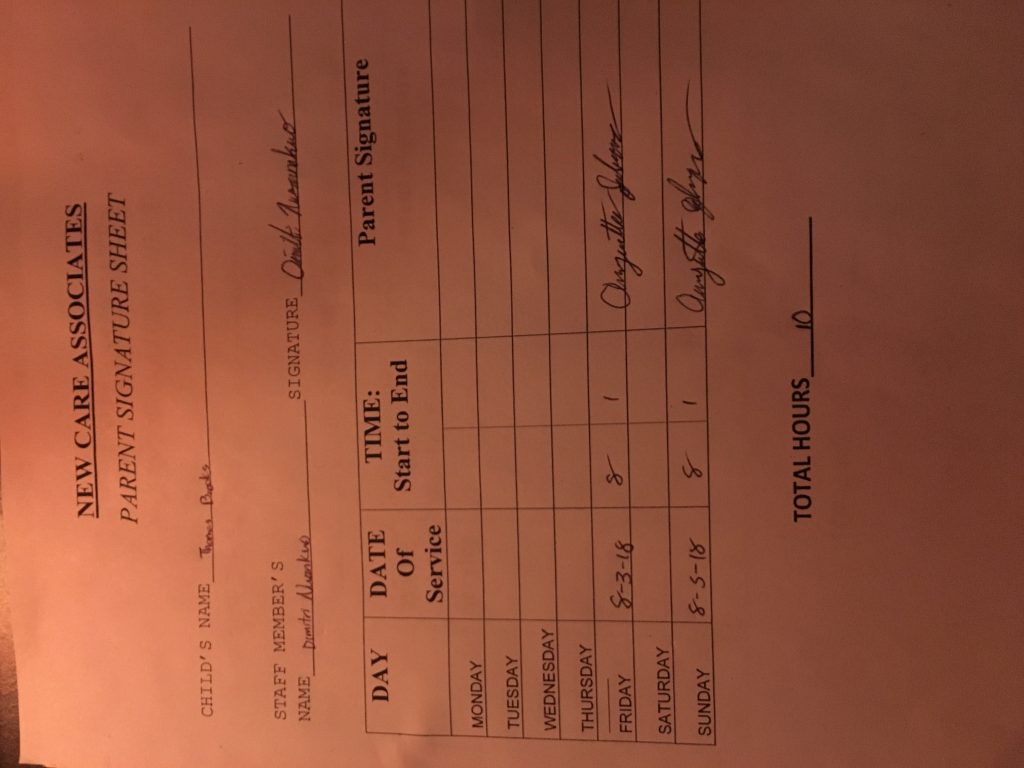 NEW CARE ASSOCIATES
PARENT SIGNATURE SHEET
CHILD'S NAME Thomas
STAFF MEMBER'S
NAME Dimitri SIGNATURE
DAY DATE Of Service TIME: Start to End Parent Signature
MONDAY
TUESDAY
WEDNESDAY
THURSDAY
FRIDAY 8-3-18 8 1
SATURDAY
SUNDAY 8-5-18 8 1
TOTAL HOURS 10